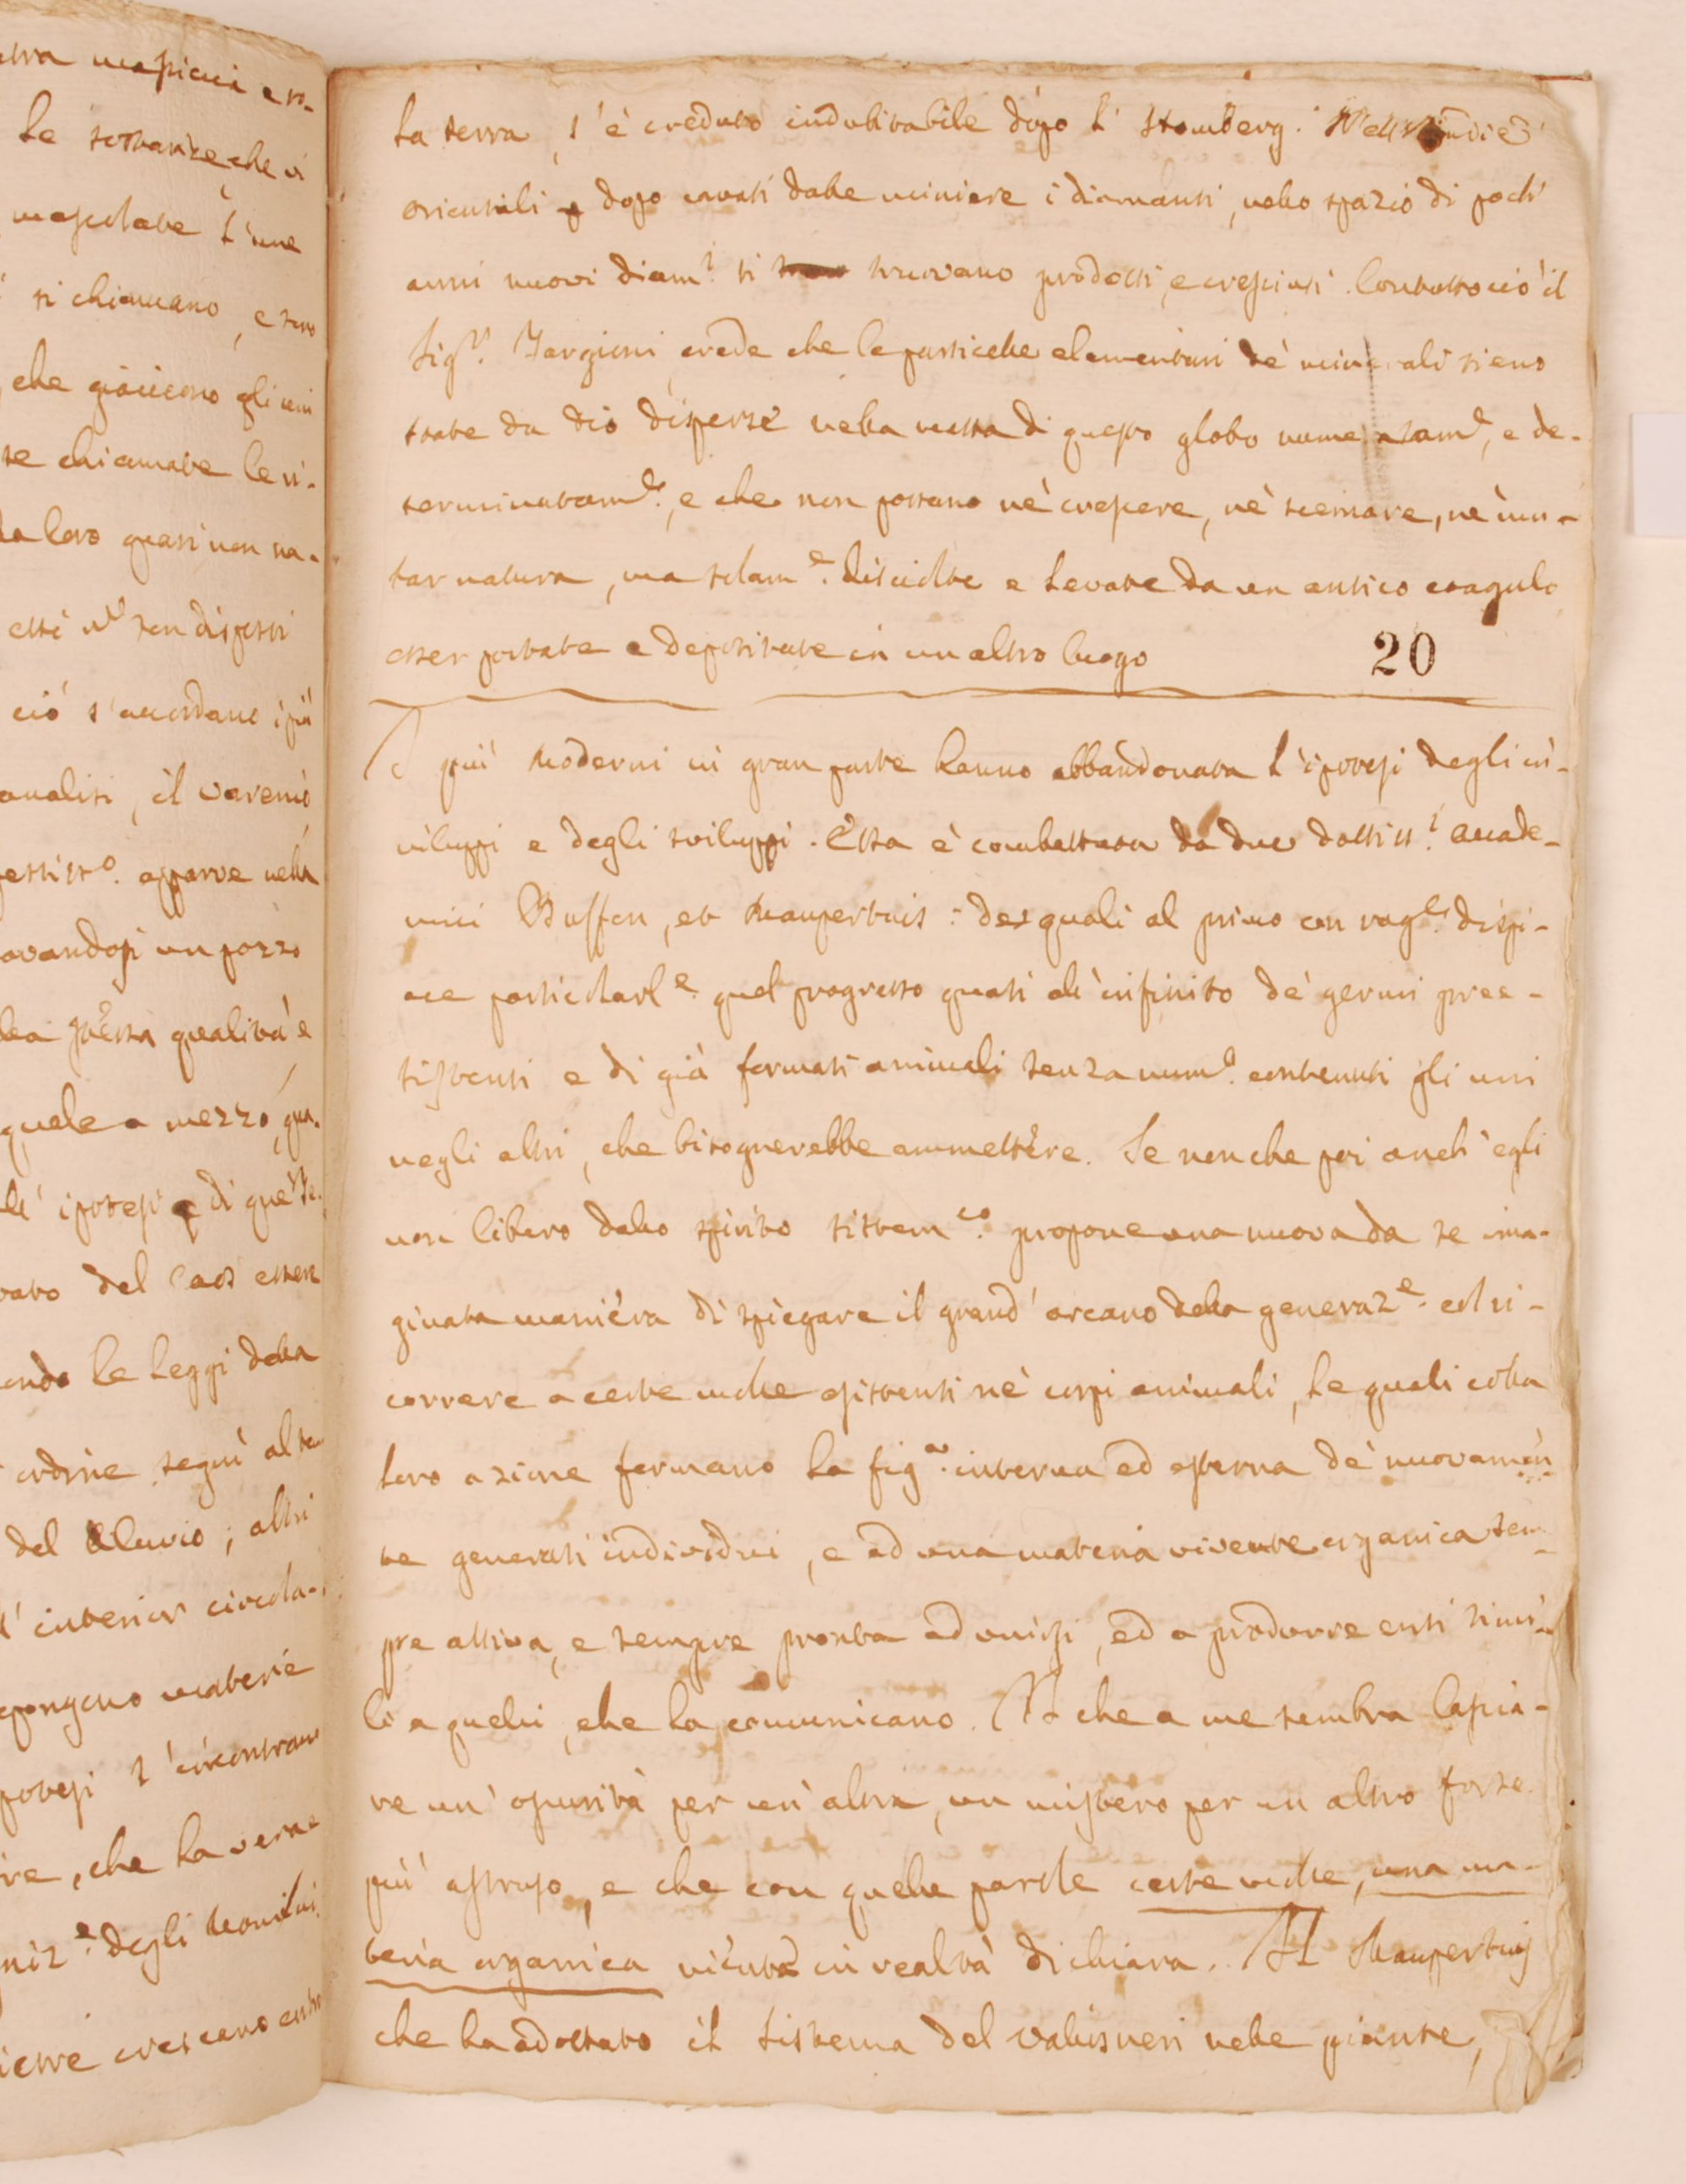 stra
le sostanze, che vi
mescolate l'une
si chiamano, e sono
che giacciono gli uni
se chiamate le vi-
da loro quasi non na-
ciò s'accordano i più
analisi, il varenio
apparve nella
ovandosi un pozzo
stessa qualità e
quale a mezzo, qua-
ipotesi e di queste
vato del Caos essen
endo le leggi della
ordine seguì al
del diluvio; altri
l'interior circola-
pongono materie
potesi s'incontrano
re, che la
niz.e degli uomini
ietre crescano entro
la terra, s'è creduto indubitabile dopo l' Stomberg. Nell' Indie
orientali dopo cavati dalle miniere i diamanti, nello spazio di pochi
anni nuovi diam.i si truovano prodotti, e cresciuti. Contuttociò il
Sig.r Targioni crede che le particelle elementari de' minerali sieno
state da dio disperse nella massa di questo globo numeratam.e, e de-
terminatam.e, e che non possano nè crescere, nè scemare, nè mu-
tar natura, ma solam.e disciolte e levate da un antico coagulo
esser portate e depositate in un altro luogo
20
I più moderni in gran parte hanno abbandonata l'ipotesi degli in-
viluppi e degli sviluppi. Essa è combattuta da due dottiss.i accade-
mici Buffon, et Maupertuis: de' quali al primo con rag.e dispi-
ace particolarl.e quel progresso quasi all' infinito de' germi pree-
sistenti e di già formati animali senza num.o contenuti gli uni
negli altri, che bisognerebbe ammettere. Se non che poi anch'egli
non libero dallo spirito sistem.co propone una nuova da se ima-
ginata maniera di spiegare il grand'arcano della generaz.e col ri-
correre a certe molle esistenti ne' corpi animali, le quali colla
loro azione formano la fig.a interna ed esterna de' nuovamen
te generati individui, e ad una materia vivente organica sem-
pre attiva, e sempre pronta ad unirsi, ed a produrre enti simi-
li a quelli, che la comunicano. Il che a me sembra lascia-
re un' oscurità per un' altra, un mistero per un altro forse
più astruso, e che con quelle parole certe molle, una ma-
teria organica niente in realtà dichiara. Il Maupertuis
che ha adottato il sistema del Valisneri nelle piante,